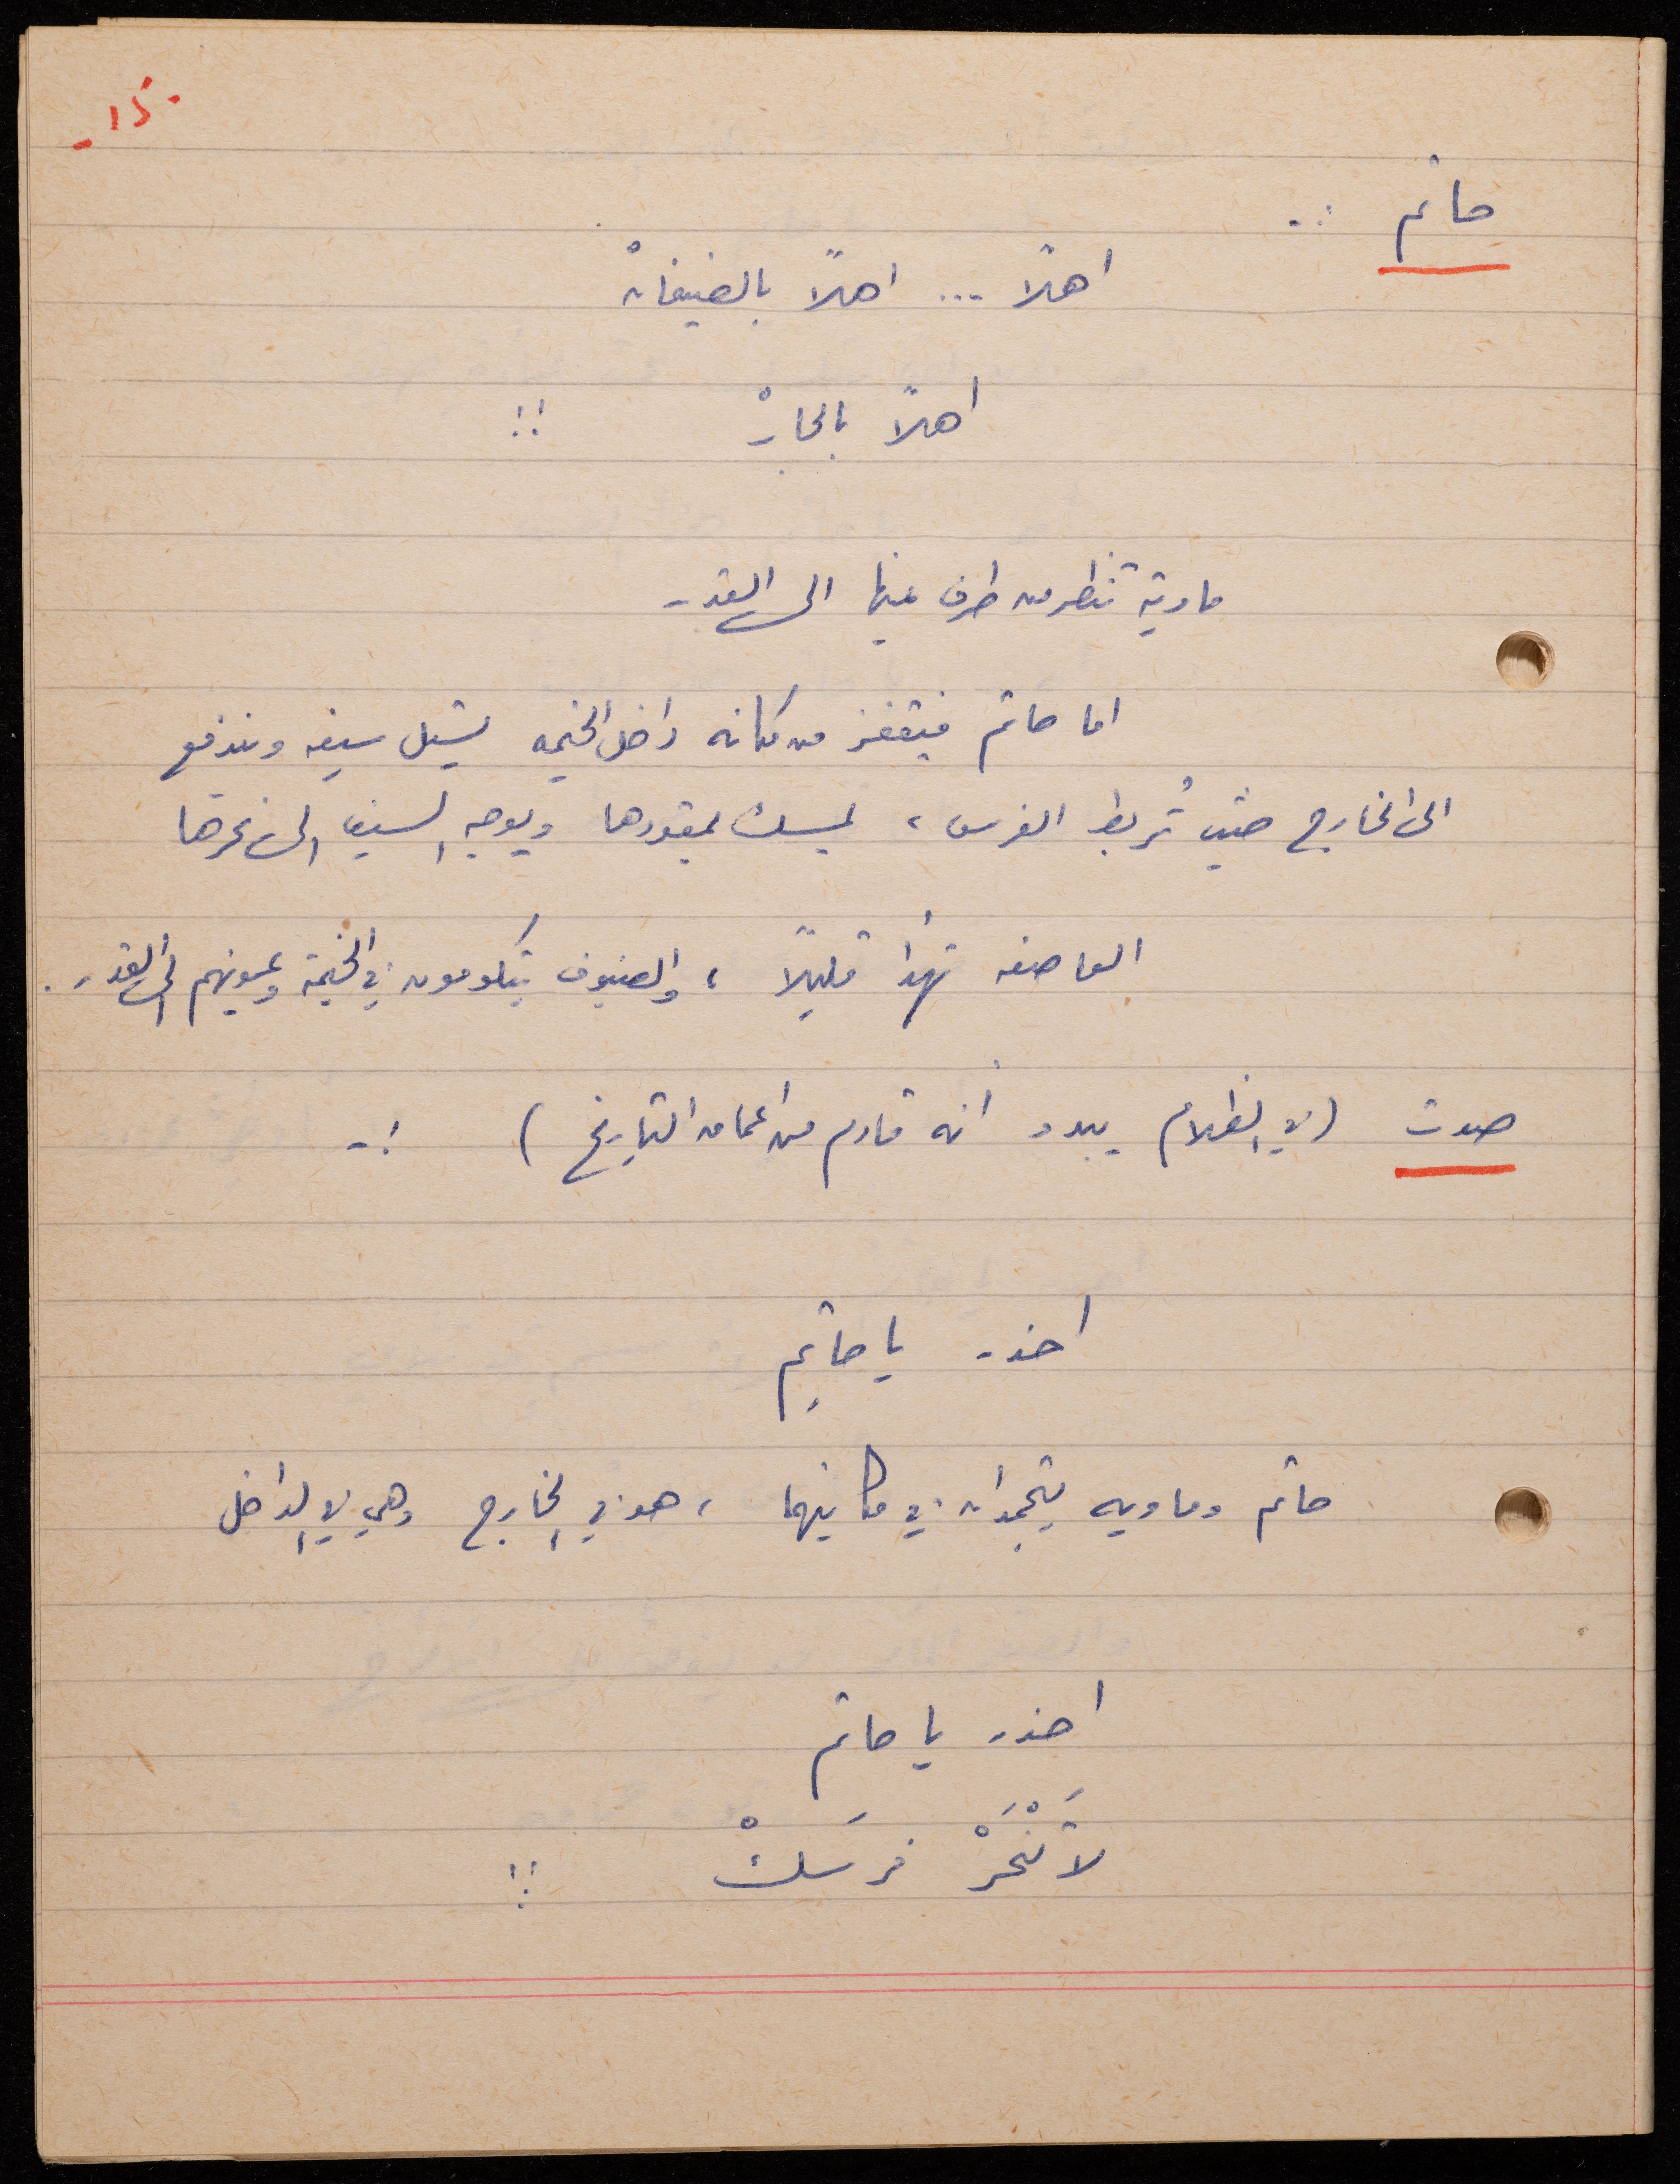 -١٥-
حاتم :-
اهلاً ... اهلاً بالضيفانْ
اهلاً بالجارْ !!
ماوية تنظر من طرف عينها الى القدر
اما حاتم فيقفز من مكانه داخل الخيمه يستل سيفه ويندفع
الى الخارج حيث تُربط الفرس ، يمسك بمقودها ويوجه السيف الى نحرها
العاصفه تهدأ قليلاً ، والضيوف يتكومون في الخيمة وعيونهم الى القدر .
صوت (في الظلام يبدو أنه قادم من اعماق التاريخ) :-
احذر يا حاتِم
حاتم وماويه يتجمدان في مكانيهما ، هو في الخارج وهي في الداخل
احذر يا حاتم
لا تَنْحَرْ فرَسَكْ !!